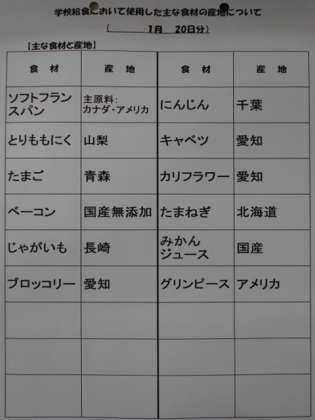 学校給食において使用した主な食材の産地について
( 1月 20日分)
【主な食材と産地】
食 材 産 地 食 材 産 地
ソフトフランスパン 主原料:カナダ・アメリカ にんじん 千葉
とりももにく 山梨 キャベツ 愛知
たまご 青森 カリフラワー 愛知
ベーコン 国産無添加 たまねぎ 北海道
じゃがいも 長崎 みかんジュース 国産
ブロッコリー 愛知 グリンピース アメリカ